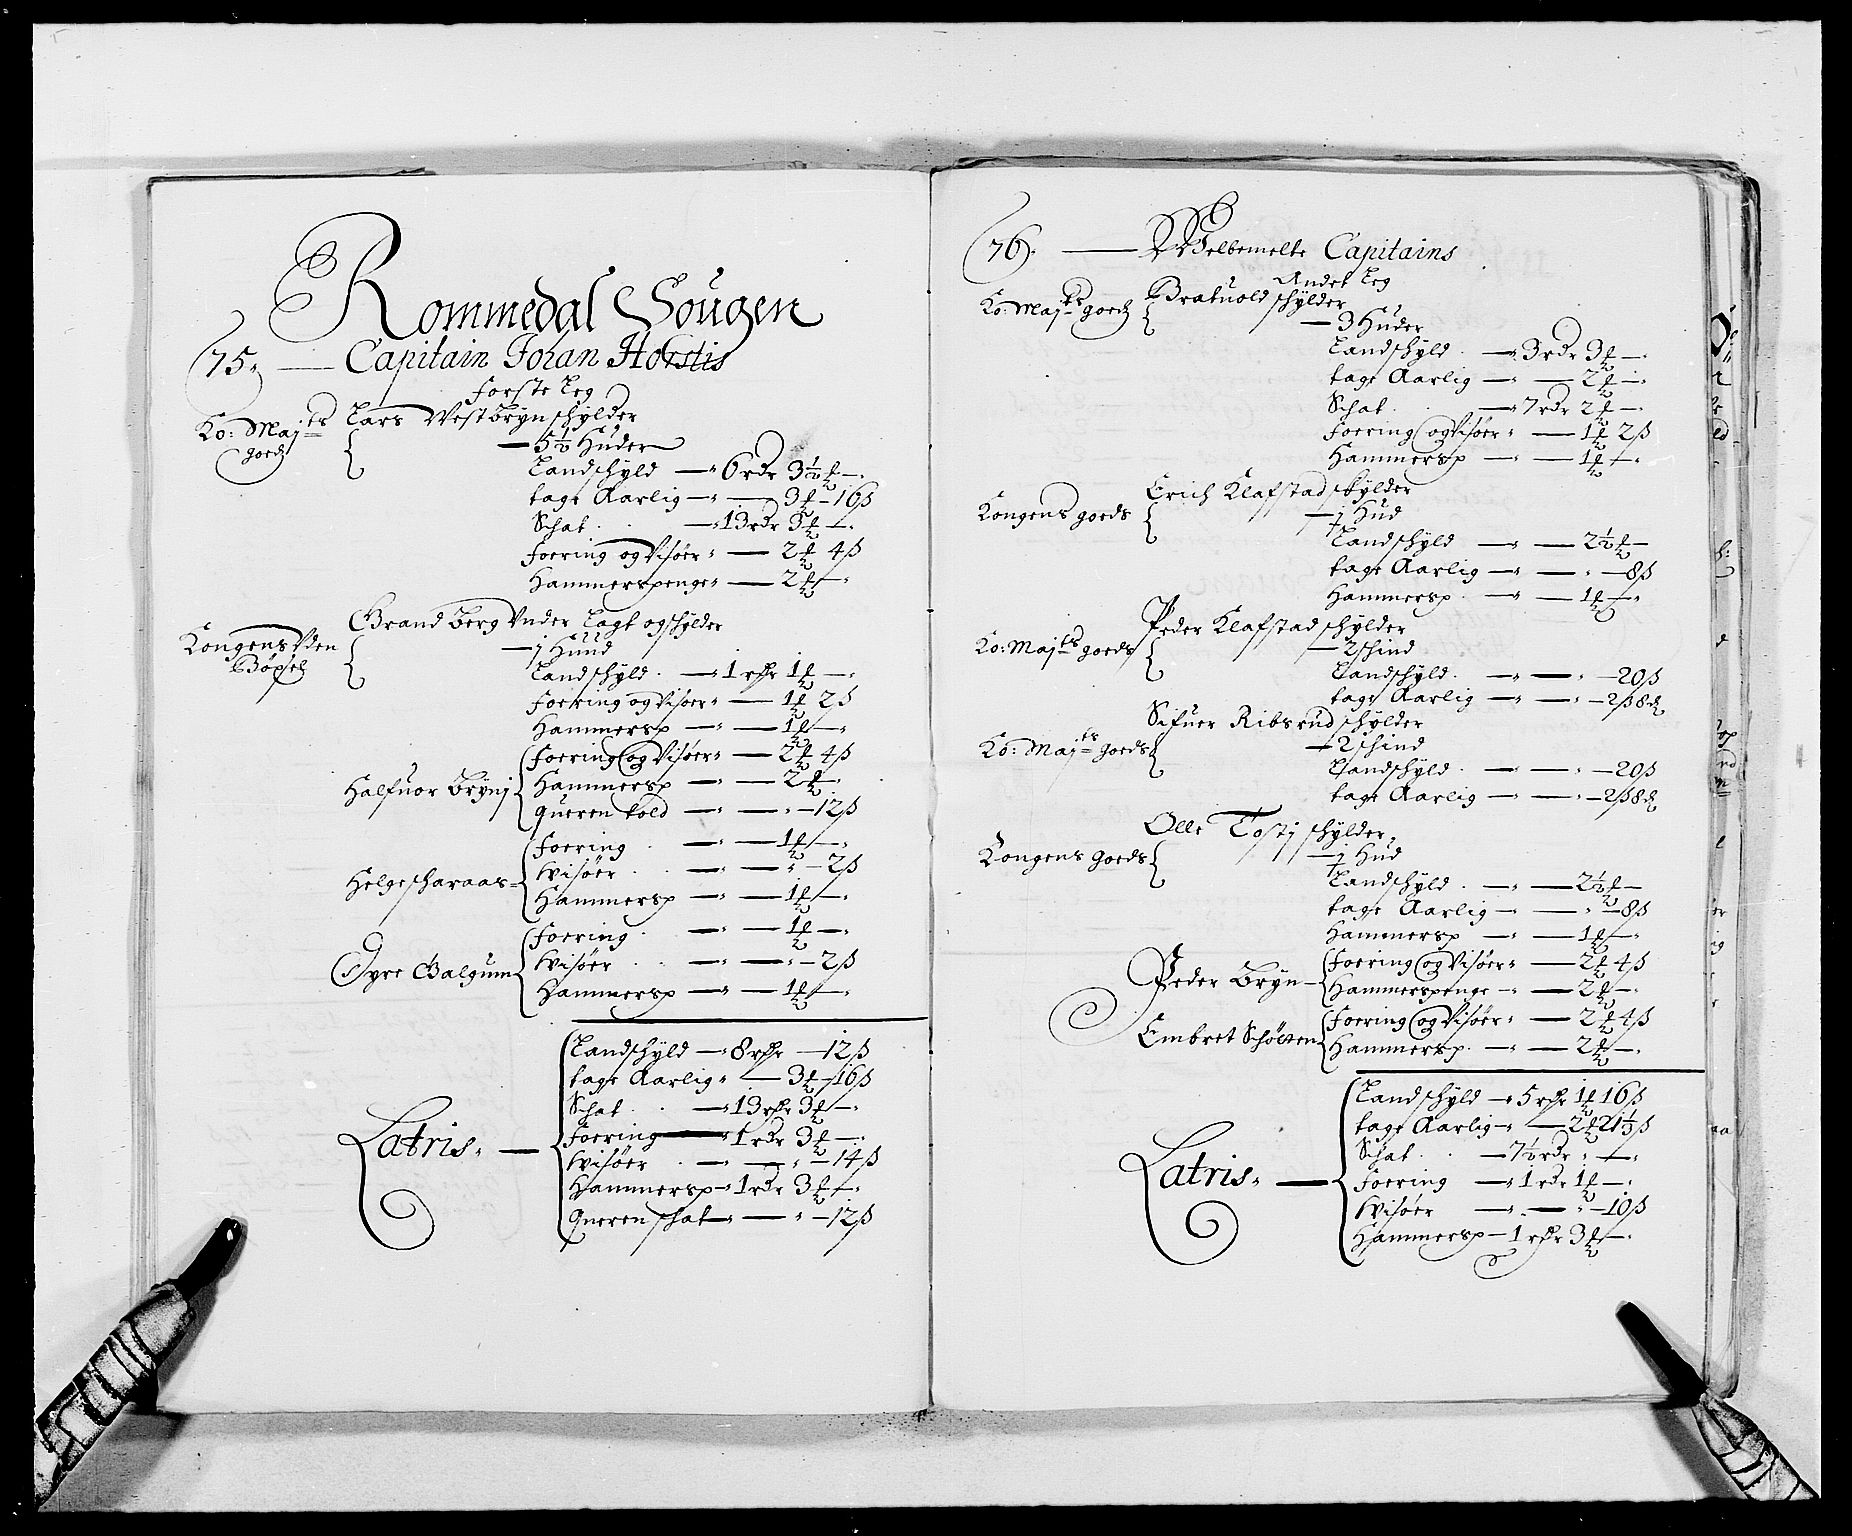 Rommedal Sougen
75. — Capitain Johan Horstis
forste Leg
Ko: Maj:ts goeds
Lars Vestbryn schylder
— 5½ Huder
Landschyld — 6 rdr 3½ ℔ —
tage Aarlig — „ — 3 ℔ — 16 ß
Schat — 13 rdr 3 ℔ —
foering og Visöer „ — 2 ℔ 4 ß
Hammerspenge „ — 2 ℔ — „
Kongens Uden Böxsel
Brandberg Under Lagt og schylder
— j Huud
Landschyld. — 1 rdr 1 ℔ — „
foering og Visöer „ — 1 ℔ 2 ß
Hammersp — „ — 1 ℔ — „
Halfuor Brynj
foering og Visöer „ — 2 ℔ 4 ß
Hammersp — „ — 2 ℔ — „
Queren told — „ — „ — 12 ß
Helgescharaas
foering — „ — 1 ℔ — „
Wisöer — „ — „ — 2 ß
Hammersp — „ — 1 ℔ — „
Syre Galgum
foering — „ — 1 ℔ — „
Wisöer — „ — „ — 2 ß
Hammersp — „ — 1 ℔ — „
Latris. —
Landschyld — 8 rdr — 12 ß
tage Aarlig „ — 3 ℔ — 16 ß
Schat. — 13 rdr 3 ℔ — „
foering — 1 rdr 3 ℔ — „
Wisöer — „ — „ — 14 ß
Hammersp — 1 rdr 3 ℔ — „
Queren schat — „ — „ — 12 ß
76. — Velbemelte Capitains
Andet Leg
Ko: Maj:ts goeds
Bratuold schylder
— 3 Huder
Landschyld. — 3 rdr 3 ℔ — „
tage Aarlig — „ — 2 ℔ — „
Schat. — 7 rdr 2 ℔ — „
foering og Visöer „ — 1 ℔ 2 ß
Hammersp — „ — 1 ℔ — „
Kongens goeds
Erich Klafstad schylder
— j Hud
Landschyld — „ — 2½ ℔ —
tage Aarlig — „ — „ — 8 ß
Hammersp. — „ — 1 ℔ — „
Ko: Maj:ts goeds
Peder Klafstad schylder
— 2 schind
Landschyld. — „ — „ — 20 ß
tage Aarlig — „ — „ — 2 ß 8 d
Ko: Maj:ts goeds
Sifuer Ribsrud schylder
— 2 schind
Landschyld. — „ — „ — 20 ß
tage Aarlig — „ — „ — 2 ß 8 d
Kongens goeds
Olle Tostj schylder.
— j Hud
Landschyld. — „ — 2½ ℔ —
tage Aarlig — „ — „ — 8 ß
Hammersp — „ — 1 ℔ — „
Peder Bryn —
foering og Visöer „ — 2 ℔ 4 ß
Hammerspenge — „ — 2 ℔ — „
Embret Schöeren
foering og Visöer „ — 2 ℔ 4 ß
Hammersp. — „ — 2 ℔ — „
Latris. —
Landschyld — 5 rdr 1 ℔ 16 ß
tage Aarlig — „ — 2 ℔ 21⅓ ß
Schat. — 7½ rdr „ — „
foering — 1 rdr 1 ℔ — „
Wisöer — „ — „ — 10 ß
Hammersp — 1 rdr 3 ℔ — „